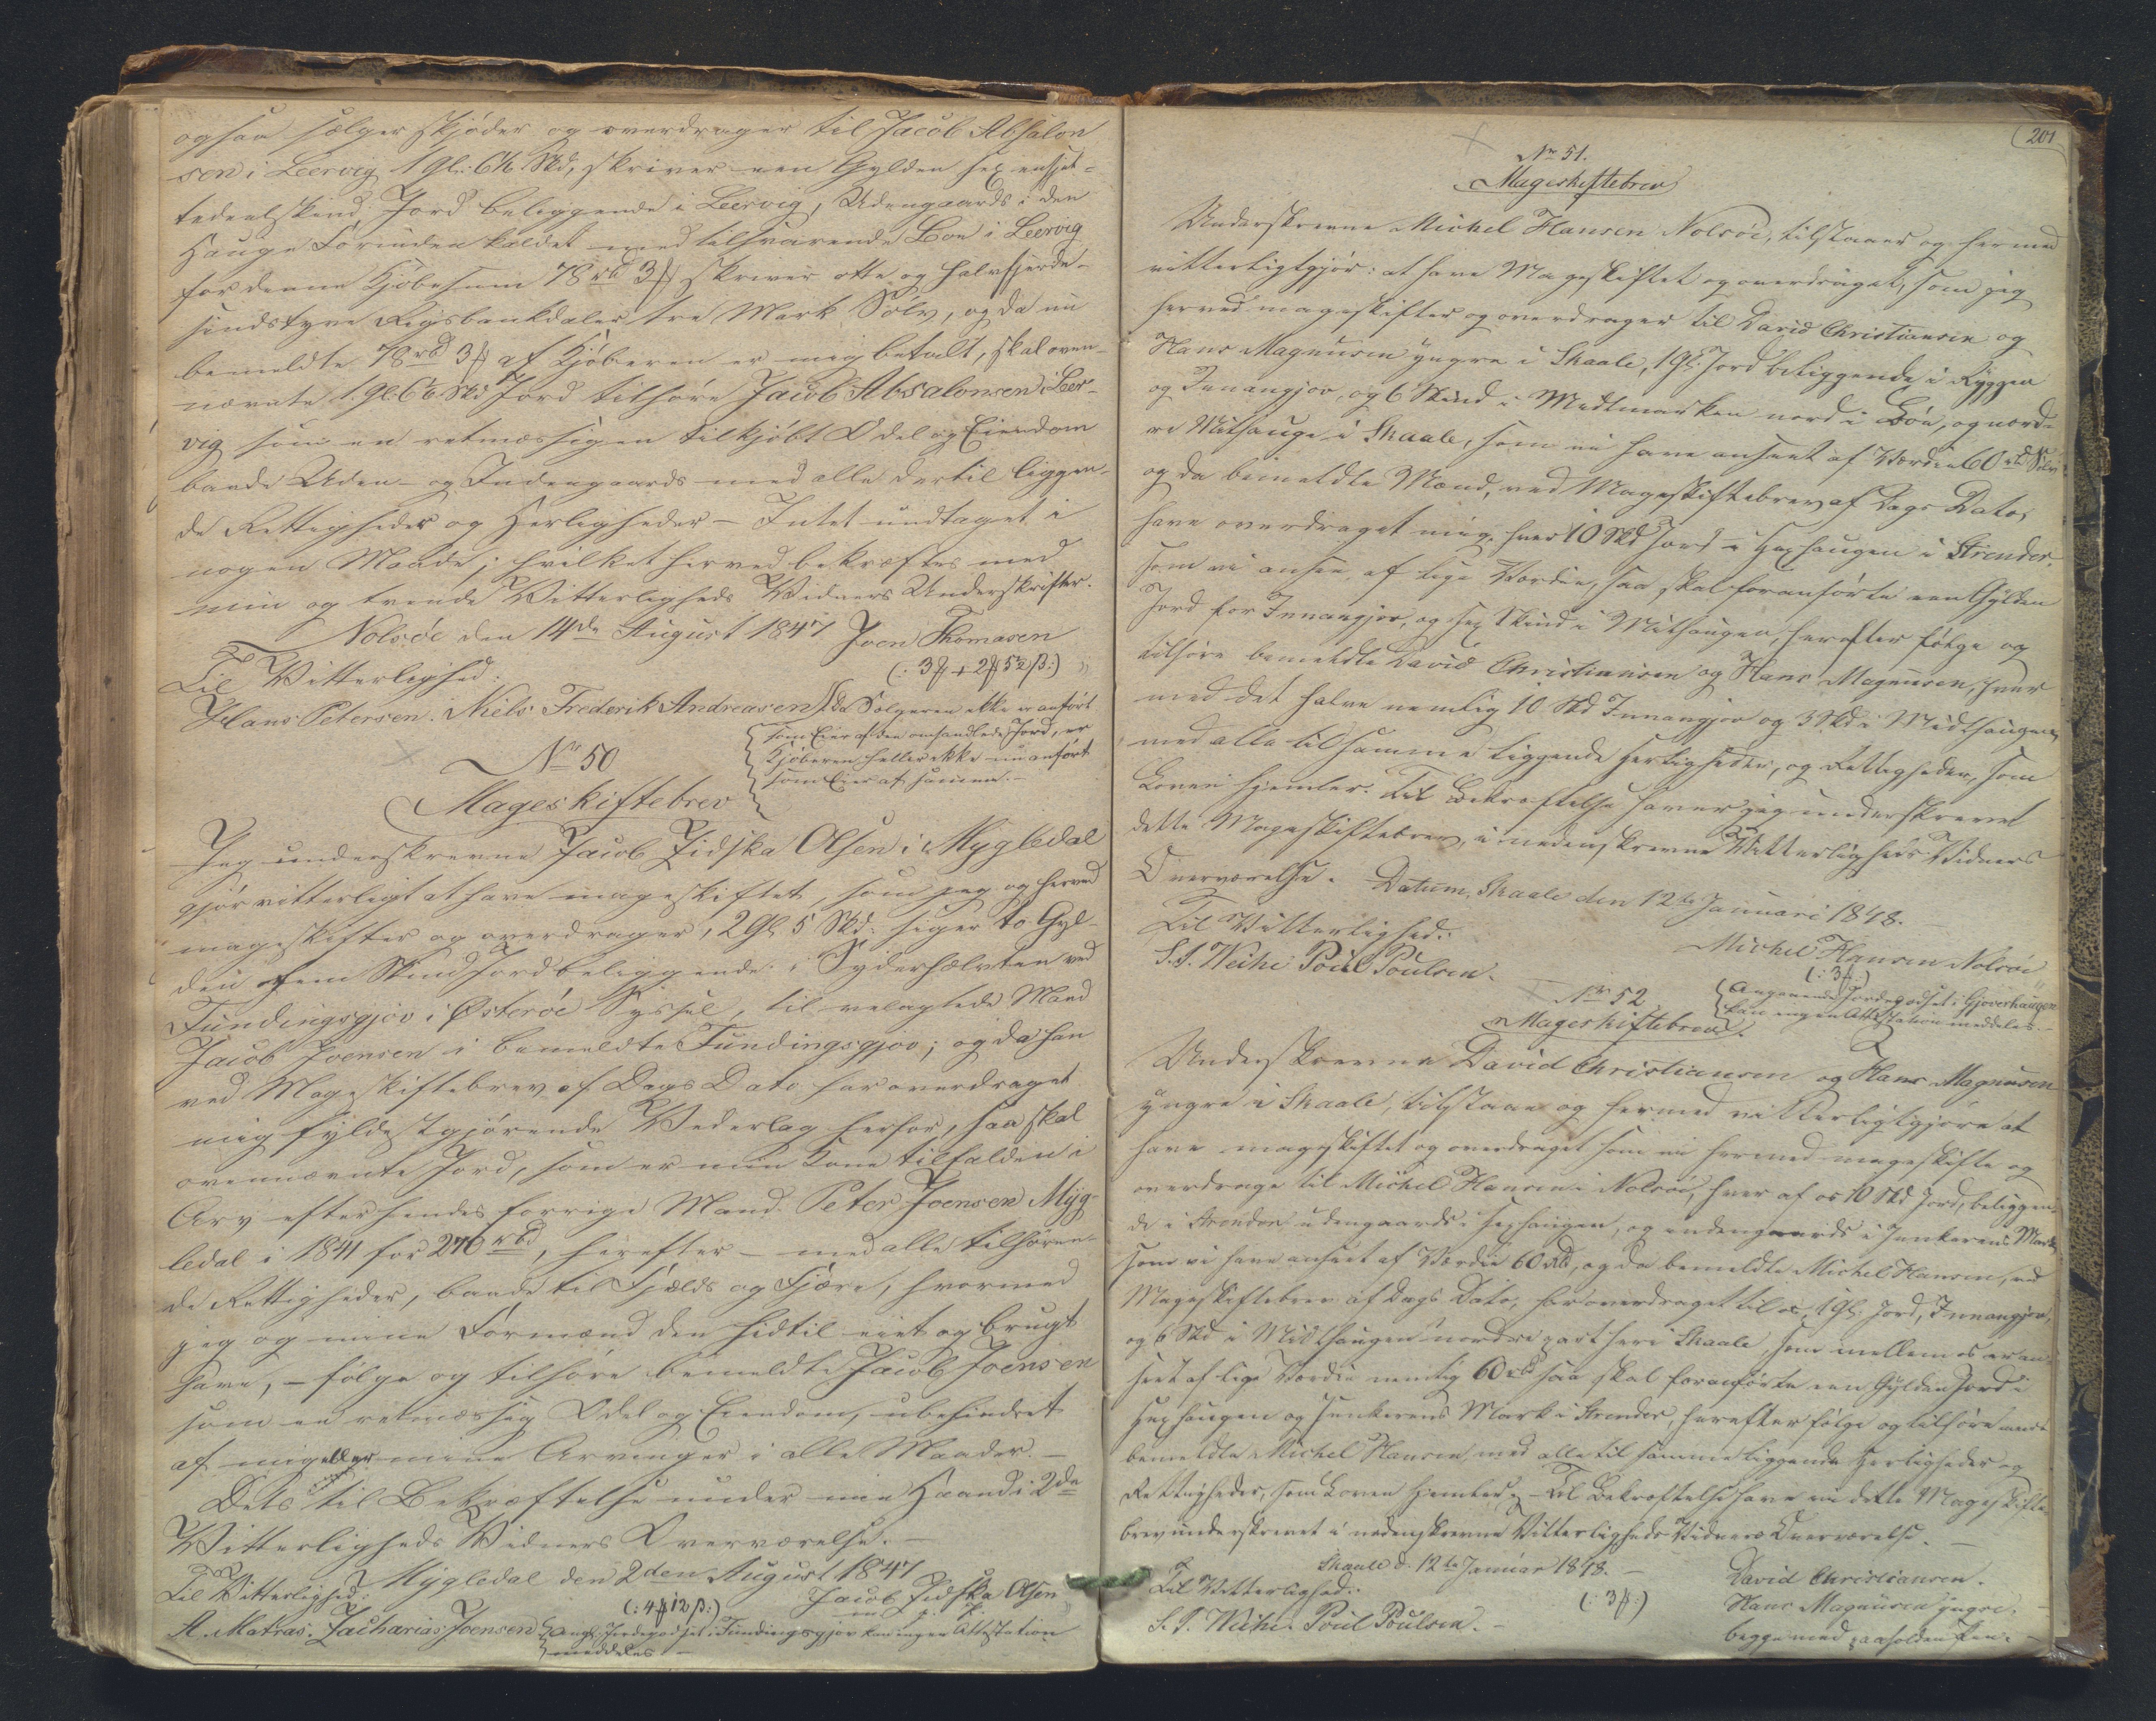 ogsaa sælger skjøder og overdrager til Jacob Absalon
sen i Leervig 1 Gl. 6½ Skd, skriver een Gylden sex
tedeelskind Jord beliggende i Leervig, Udengaards i den
Hauge kaldet med tilsvarende Bøe i Leervig
for denne Kjøbesum 78 rbd 3 ℳ skriver otte og halvfjerde-
sindstyve Rigsbankdaler tre Mark Sølv, og da nu
bemeldte 78 rbd 3 ℳ af Kjøberen er mig betalt, skal oven-
nævnte 1 Gl. 6½ Skd Jord tilhøre Jacob Absalonsen i Leer-
vig som en retmæssigen tilkjøbt Odel og Eiendom
baade Uden- og Indengaards med alle dertil liggen-
de Rettigheder og Herligheder – Intet undtaget i
nogen Maade; hvilket herved bekræftes med
min og tvende Vitterligheds Vidners Underskrifter.
Nolsøe den 14de August 1847 Joen Thomasen
Til Vitterlighed: (: 3 ℳ + 2 ℳ 5½ β :)
Hans Petersen. Niels Frederik Andreasen. da Sælgeren ikke er anført
som Eier af den omhandlede Jord, er
Kjøberen heller ikke nu anført
som Eier af samme. –
No 50
Mageskiftebrev
Jeg underskrevne Jacob Zidska Olsen i Mygledal
gjør vitterligt at have mageskiftet, som jeg og herved
mageskifter og overdrager, 2 Gl. 5 Skd: siger to Gyl-
den fem Skind Jord beliggende i Syderhælvten ved
Fundingsgjov i Østerøe Syssel, til velagtede Mand
Jacob Joensen i bemeldte Fundingsgjov; og da han
ved Mageskiftebrev af Dags Dato har overdraget
mig fyldestgjørende Vederlag herfor, saa skal
ovennævnte Jord, som er min Kone tilfalden i
Arv efter hendes forrige Mand Peter Joensen Myg-
ledal i 1841 for 270 rbd, herefter – med alle tilhøren-
de Rettigheder, baade til Fjelds og Fjære, hvormed
jeg og mine Formænd den hidtil eiet og brugt
have, – følge og tilhøre bemeldte Jacob Joensen
som en retmæssig Odel og Eiendom, ubehindret
af mig eller mine Arvinger i alle Maader. –
Dets til Bekræftelse under min Haand i 2de
Vitterligheds Vidners Overværelse. –
Mygledal den 2den August 1847
Til Vitterlighed: Jacob Zidska Olsen
(: 4 ℳ 12 β :) m. p. P.
A. Matras. Zacharias Joensen Angl. Jordegodset i Fundingsgjov kan ingen Attestation
meddeles –
201
No 51.
Mageskiftebrev
Underskrevne Michel Hansen Nolsøe, tilstaaer og hermed
vitterligtgjør: at have Mageskiftet og overdraget, som jeg
herved mageskifter og overdrager til David Christiansen og
Hans Magnusen yngre i Skaale, 1 Gl. Jord beliggende i Ryggen
og Innangjov, og 6 Skind i Midtmarken nord i Bøe, og nord-
re Mithauge i Skaale, som vi have anseet af Værdie 60 rbd Sølv
og da bemeldte Mænd, ved Mageskiftebrev af Dags Dato,
have overdraget mig, hver 10 Skd Jord i Sexhaugen i Strender,
som vi ansee, af lige Værdie, saa skal foranførte een Gylden
Jord for Innangjov, og sex Skind i Mithaugen, herefter følge og
tilhøre bemeldte David Christiansen og Hans Magnusen, hver
med det halve nemlig 10 Skd Innangjov og 3 Skd i Midthaugen,
med alle til samme liggende Herligheder, og Rettigheder, som
Loven hjemler. Til Bekræftelse haver jeg underskrevet
dette Mageskiftebrev, i nedenskrevne Vitterligheds Vidners
Overværelse. Datum, Skaale den 12te Januari 1848. –
Til Vitterlighed: Michel Hansen Nolsøe
S. J. Weihe. Poul Poulsen. (: 3 ℳ :)
No 52 Angaaende Jordegodset i Gjoverhaugen
kan ingen Attestation meddeles –
Mageskiftebrev.
Underskrevne David Christiansen og Hans Magnusen
yngre i Skaale, tilstaae og hermed vitterligtgjøre at
have mageskiftet og overdraget som vi hermed mageskifte og
overdrage til Michel Hansen i Nolsøe, hver af os 10 Skd Jord, beliggen-
de i Strender udengaards i Sexhaugen, og indengaards i Junkerens Mark
som vi have anseet af Værdie 60 Rbd, og da bemeldte Michel Hansen, ved
Mageskiftebrev af Dags Dato, har overdraget til os, 1 Gl. Jord, Innangjov,
og 6 Skd i Midthaugen nordre part her i Skaale, som mellem os er an-
seet af lige Værdie nemlig 60 rbd saa skal foranførte een Gylden Jord i
Sexhaugen og Junkerens Mark i Strender, herefter følge og tilhøre
bemeldte Michel Hansen, med alle til samme liggende Herligheder og
Rettigheder, som Loven hjemler. – Til Bekræftelse have vi dette Mageskifte-
brev underskrevet i nedenskrevne Vitterligheds Vidners Overværelse. –
Skaale d. 12te Januar 1848. –
Til Vitterlighed: David Christiansen.
S. J. Weihe. Poul Poulsen. – (: 3 ℳ :) Hans Magnusen yngre. –
begge med paaholden Pen. –